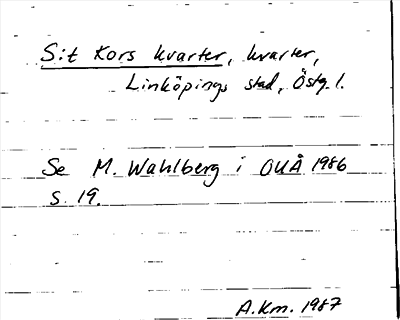 S:t Kors kvarter, kvarter,
Linköpings stad, Östg. l.
Se M. Wahlberg i OUÅ 1986
s. 19.
A.Km. 1987